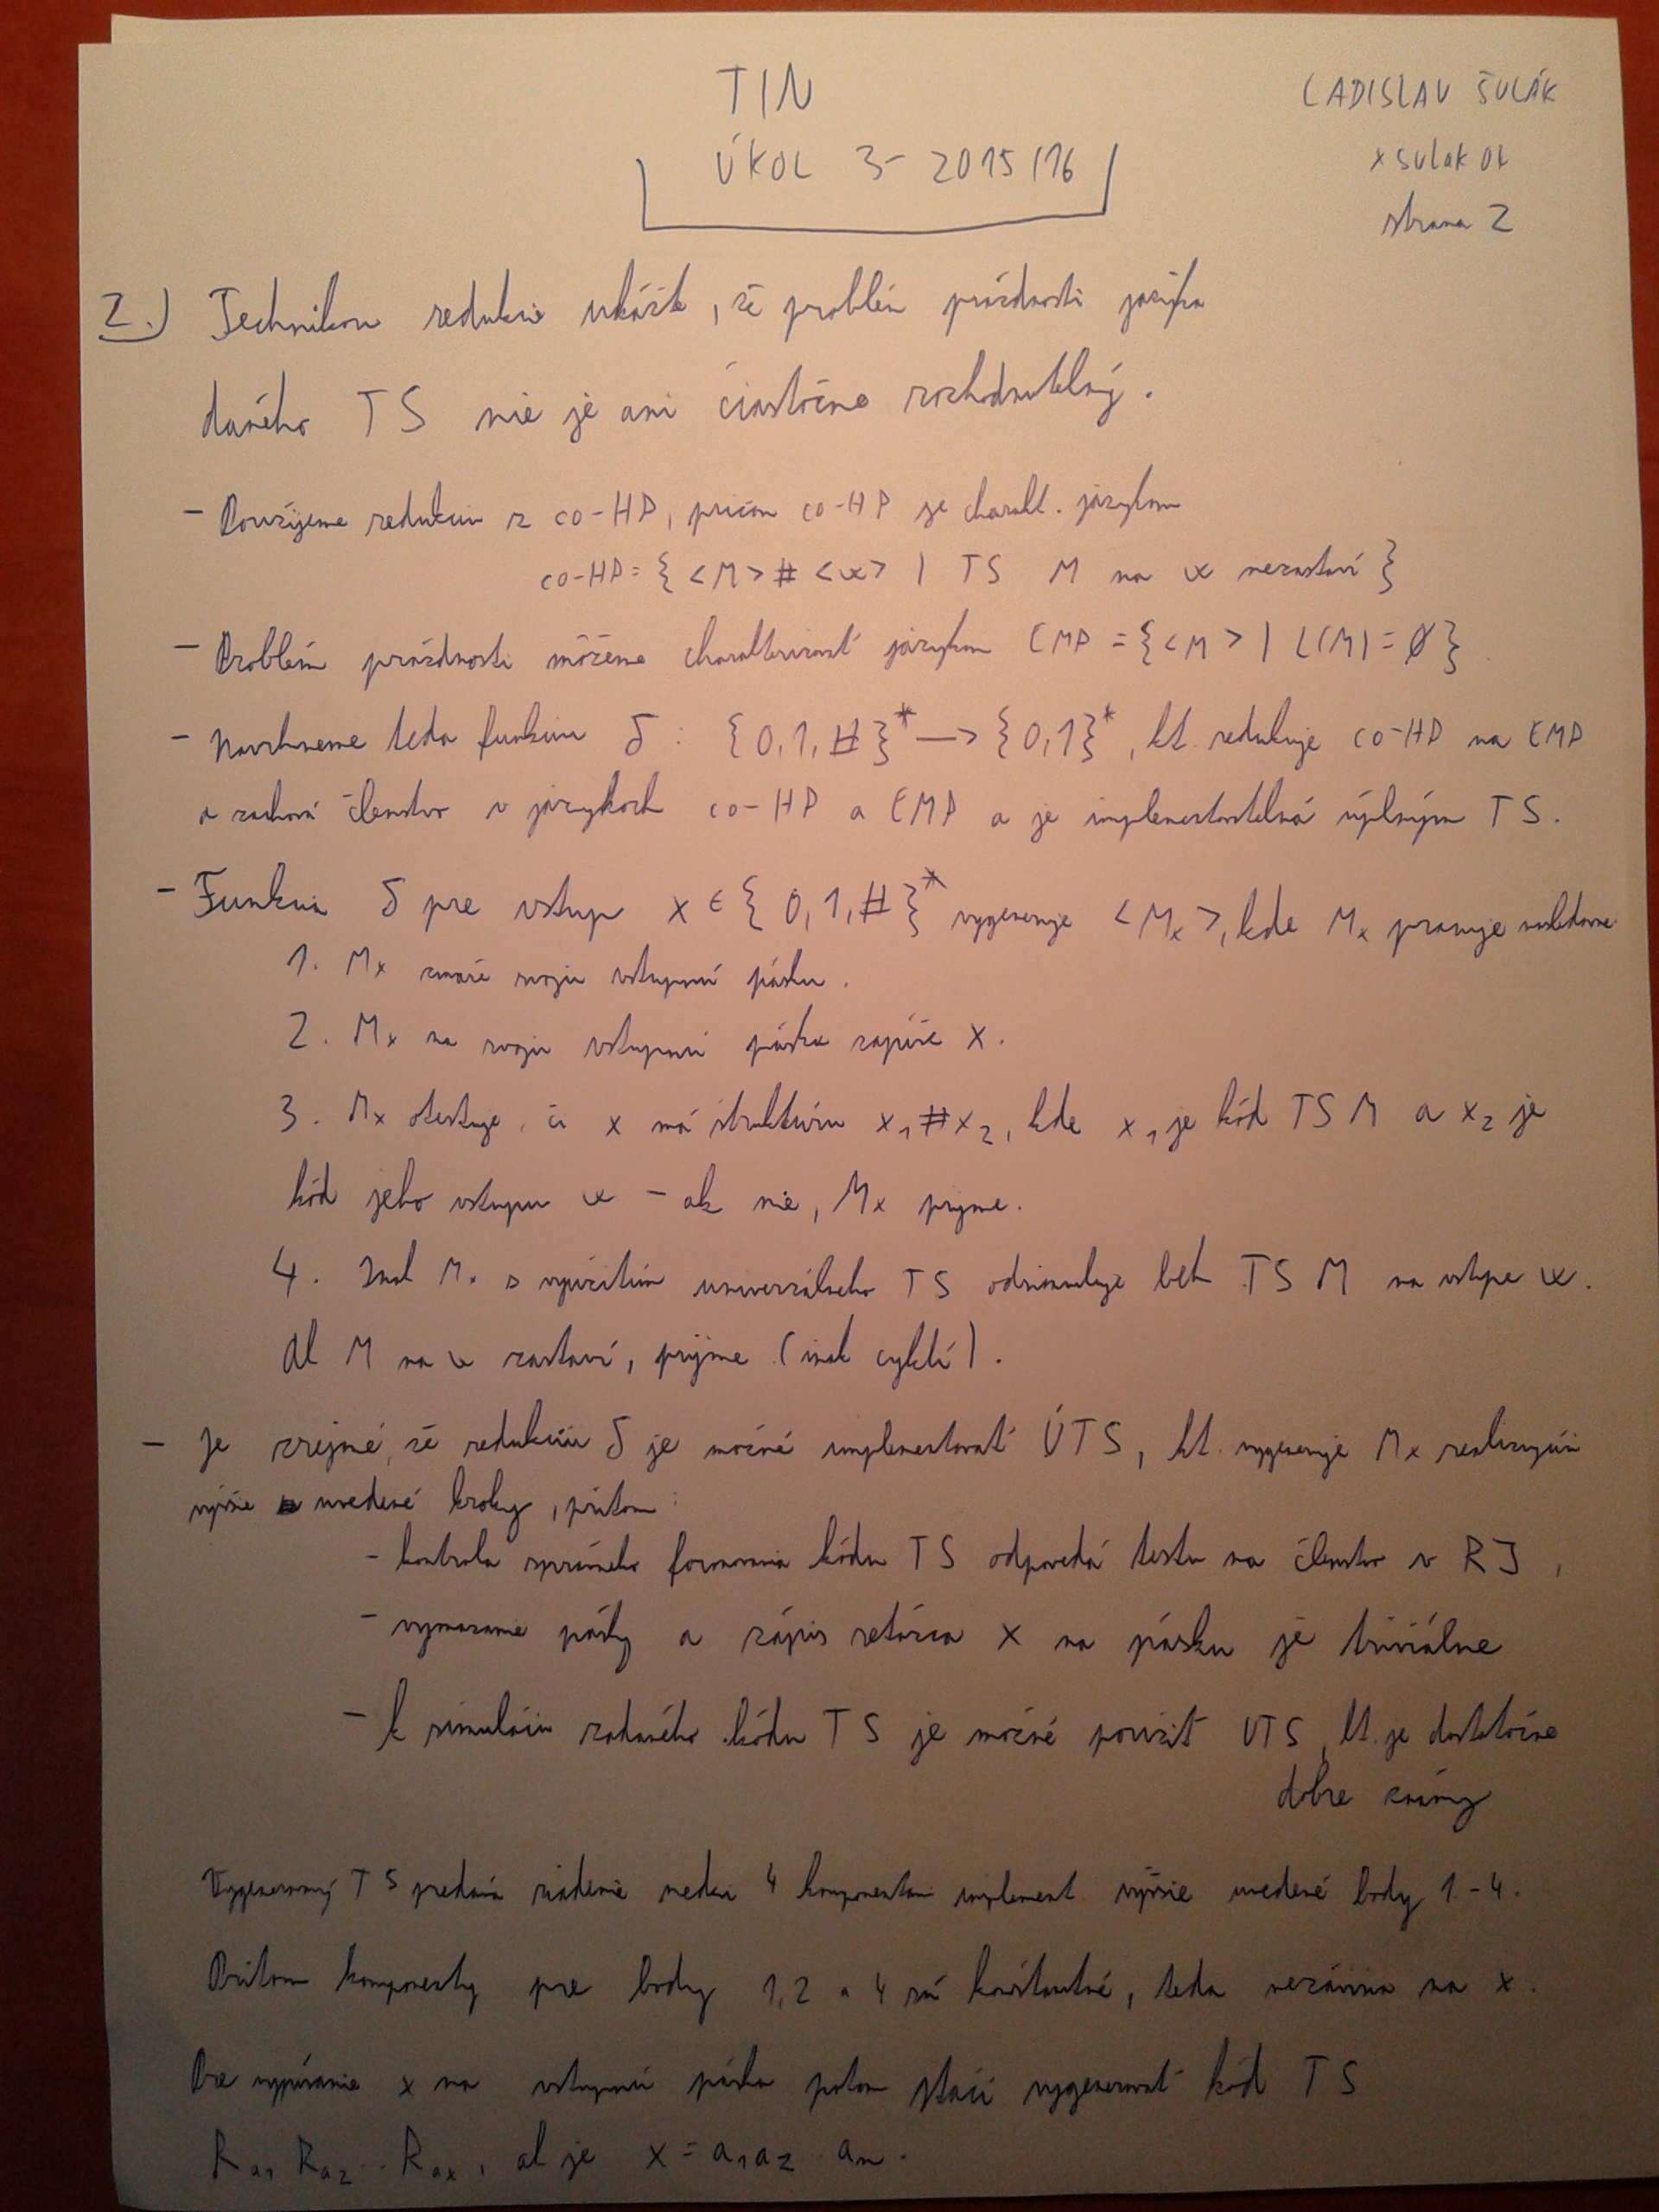 TIN
ÚKOL 3 - 2015/16
LADISLAV ŠULÁK
xsulak01
strana 2
2.) Technikou redukcie ukážte, že problém prázdnosti jazyka
daného TS nie je ani čiastočne rozhodnuteľný.
- Použijeme redukciu z co-HP, pričom co-HP je charakt. jazykom
co-HP = { <M> # <w> | TS M na w nezastaví }
- Problém prázdnosti môžeme charakterizovať jazykom EMP = { <M> | L(M) = ∅ }
- Navrhneme teda funkciu δ : {0,1,#}* —> {0,1}*, kt. redukuje co-HP na EMP
a zachová členstvo v jazykoch co-HP a EMP a je implementovateľná úplným TS.
- Funkcia δ pre vstup x ∈ {0,1,#}* vygeneruje <Mx>, kde Mx pracuje nasledovne
1. Mx zmaže svoju vstupnú pásku.
2. Mx na svoju vstupnú pásku zapíše x.
3. Mx otestuje, či x má štruktúru x1#x2, kde x1 je kód TS M a x2 je
kód jeho vstupu w - ak nie, Mx prijme.
4. Inak Mx s využitím univerzálneho TS odsimuluje beh TS M na vstupe w.
Ak M na w zastaví, prijme (inak cyklí).
- Je zrejmé, že redukciu δ je možné implementovať ÚTS, kt. vygeneruje Mx realizujúci
vyššie uvedené kroky, pritom:
- kontrola správneho formovania kódu TS odpovedá testu na členstvo v RJ,
- vymazanie pásky a zápis reťazca x na pásku je triviálne
- k simulácii zadaného kódu TS je možné použiť UTS, kt. je dostatočne
dobre známy
Vygenerovaný TS predáva riadenie medzi 4 komponentami implement. vyššie uvedené body 1.-4.
Pritom komponenty pre body 1,2 a 4 sú konštantné, teda nezávisia na x.
Pre vypísanie x na vstupnú pásku potom stačí vygenerovať kód TS
Ra1 Ra2 ... Rax, ak je x = a1a2 .. an.